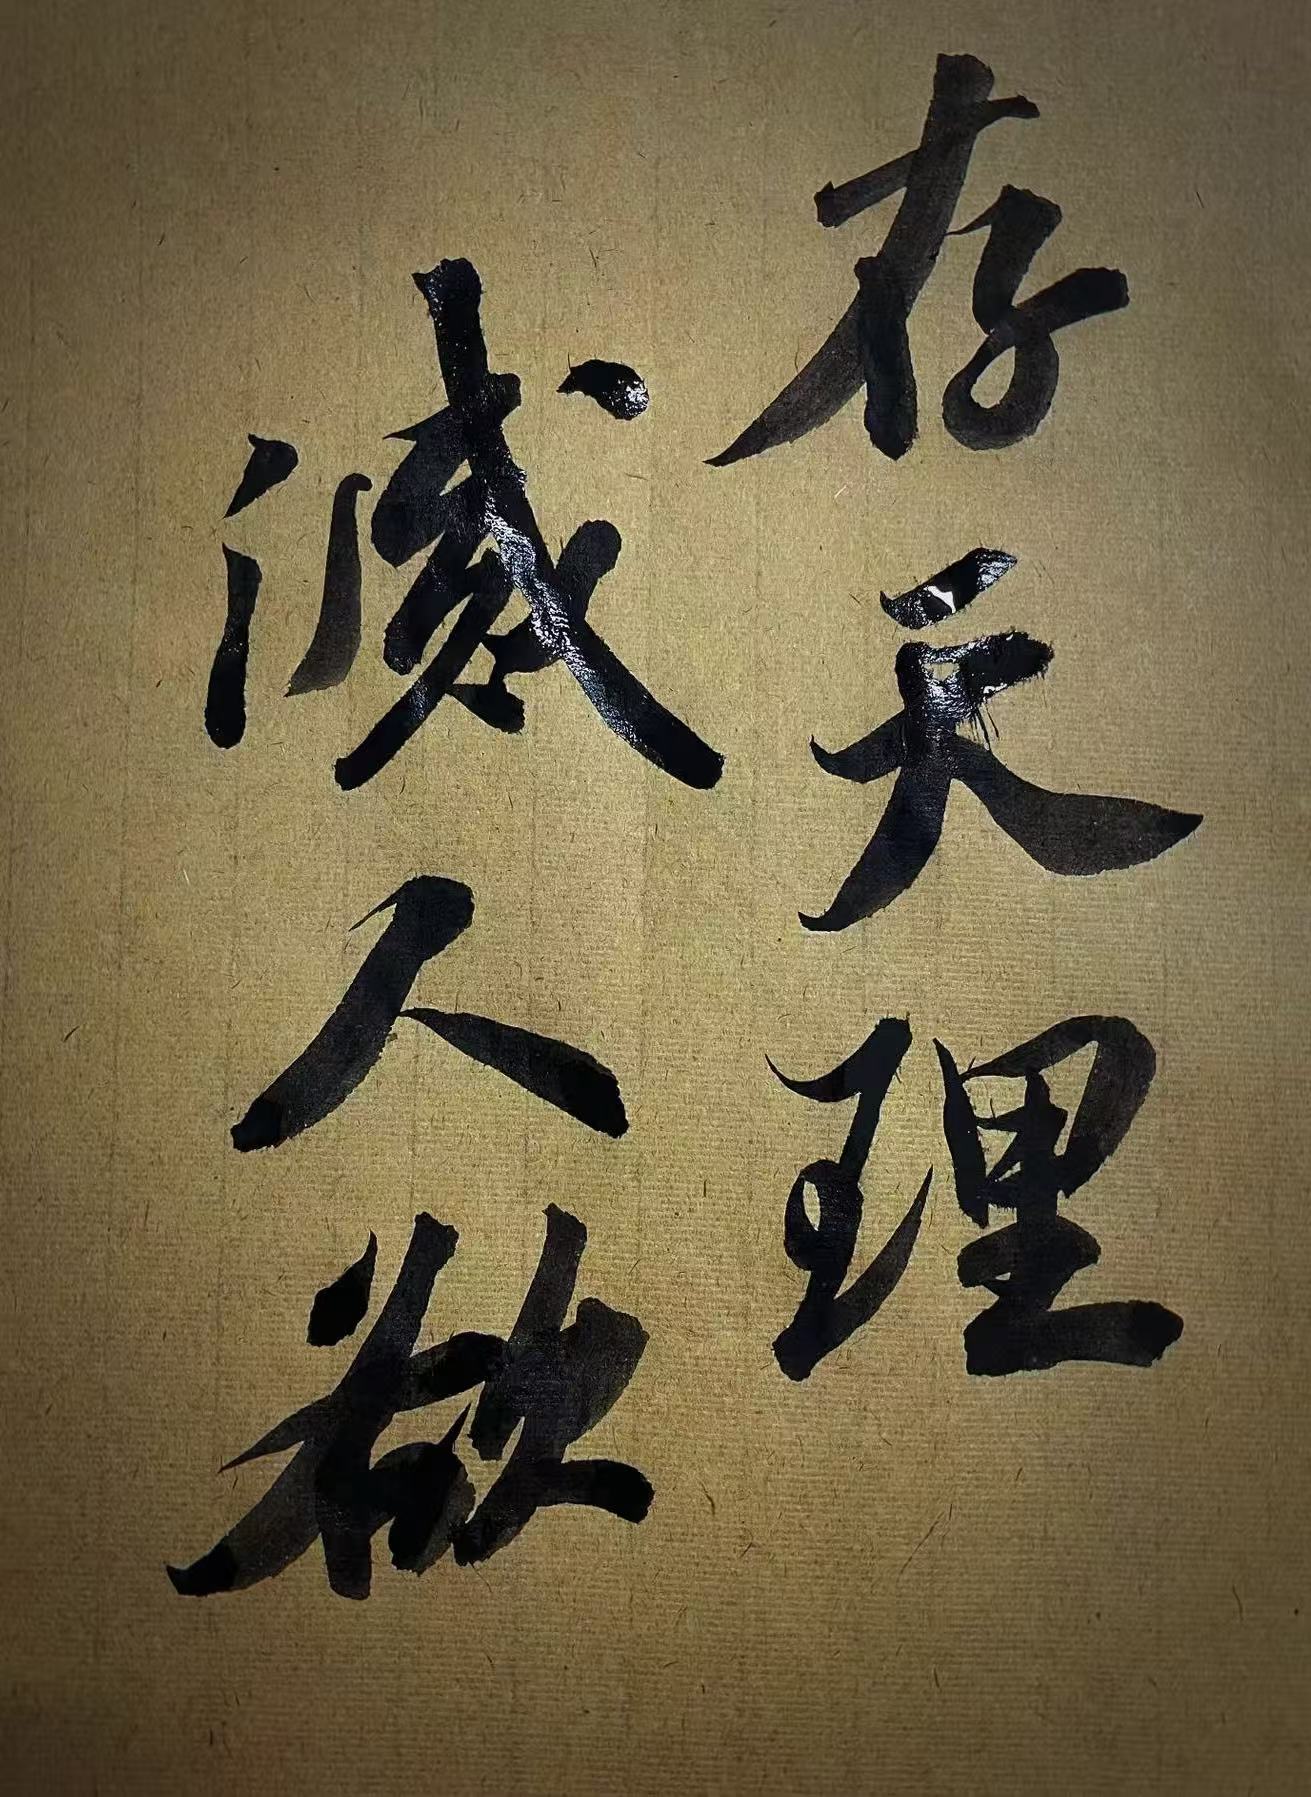 存天理
滅人欲